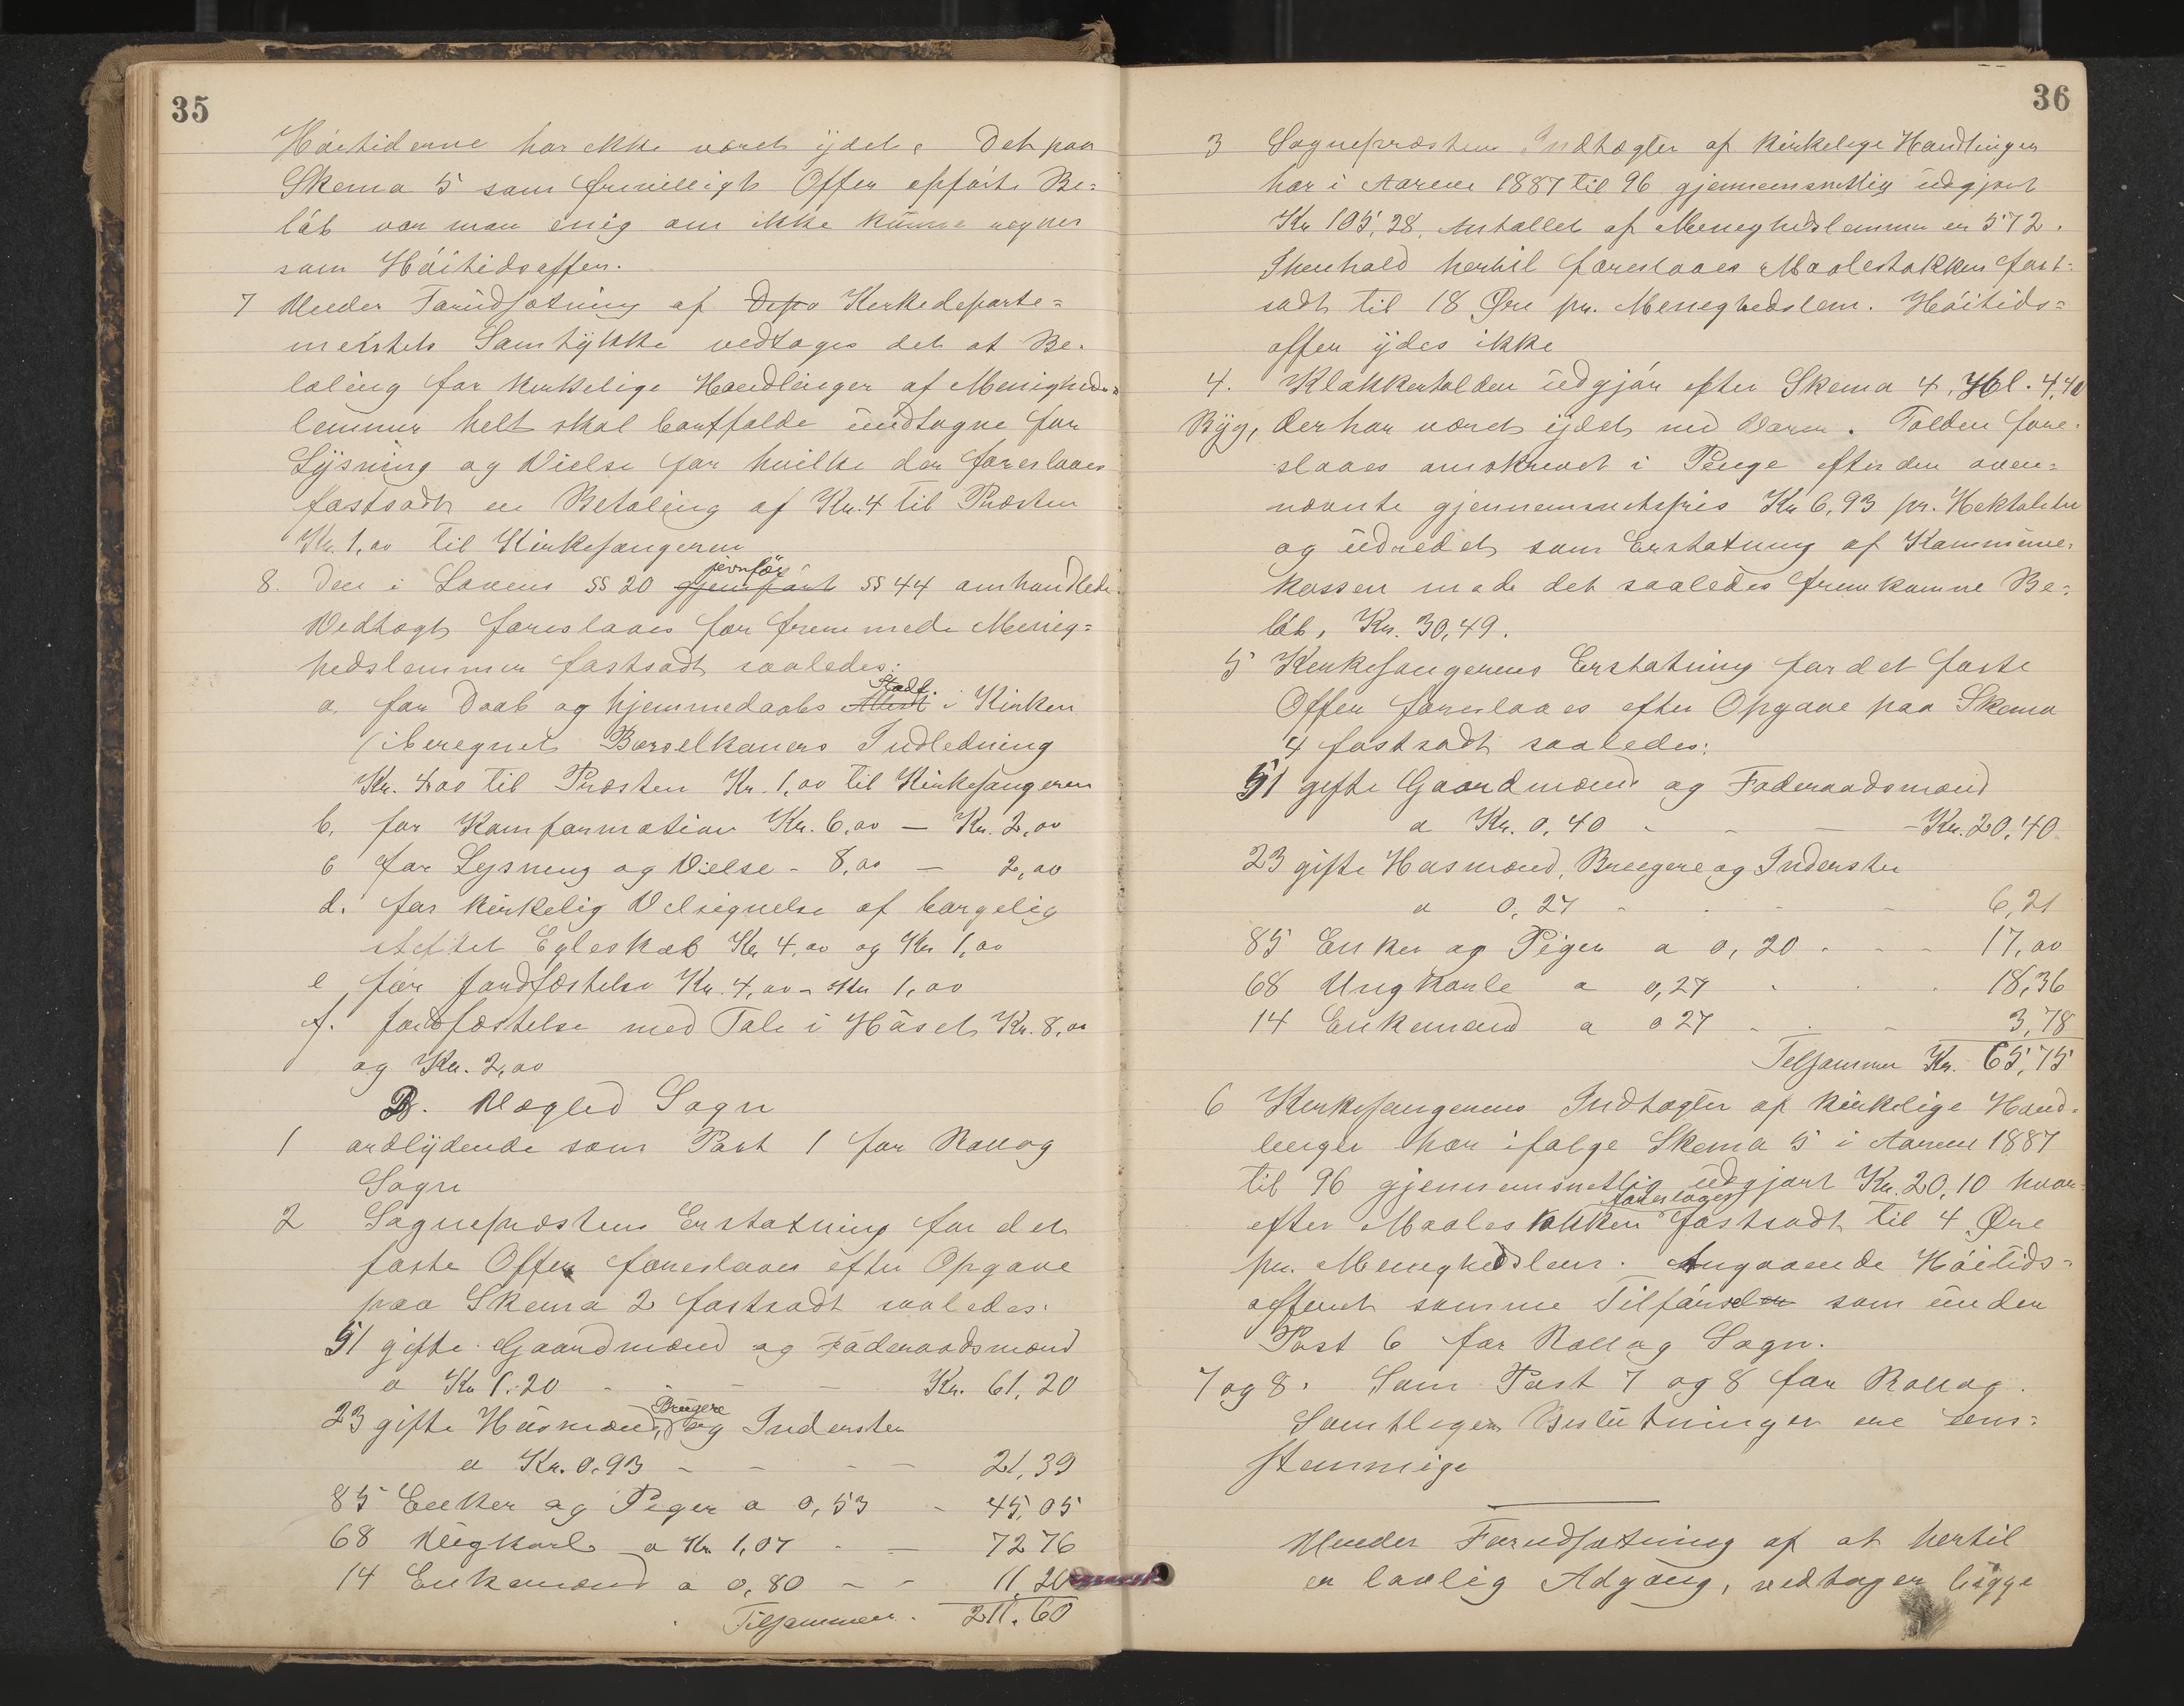 35
Höitiderne har ikke været ydet. Det paa
Skema 5 som frivilligt Offer opförte Be=
löb var man enig om ikke kunne regnes
som Höitidsoffer.
7 Under Forudsætning af Depa Kirkedeparte=
mentets Samtykke vedtoges det at Be-
taling for kirkelige Handlinger af Menigheds=
lemmer helt skal bortfalde undtagne for
Lysning og Vielse for hvilke der foreslaaes
fastsadt en Betaling af Kr. 4 til Præsten
Kr. 1,00 til Kirkesangeren
8. Den i Lovens §§ 20 gjemfört jevnför §§ 44 omhandlede
Vedtagt foreslaaes for fremmede Menig=
hedslemmer fastsadt saaledes:
a. for Daab og hjemmedaabs Stadf. i Kirken
(iberegnet Barselkoners Indledning
Kr. 4,00 til Præsten Kr. 1,00 til Kirkesangeren
b. for Konformation Kr. 6,00 — Kr. 2,00
c for Lysning og Vielse - 8,00 — 2,00
d. for kirkelig Velsignelse af borgelig
stiftet Egteskab Kr 4,00 og Kr 1,00
e for Jordfæstelse Kr. 4,00 - Kr 1,00
f. Jordfæstelse med Tale i Huset Kr. 8,00
og Kr. 2,00
B. Vegled Sogn
1 ordlydende som Post 1 for Rollog
Sogn
2 Sognepræstens Erstatning for det
faste Offer foreslaaes efter Opgave
paa Skema 2 fastsadt saaledes:
51 gifte Gaardmænd og Föderaadsmænd
a Kr 1.20 - - - - Kr. 61,20
23 gifte Husmænd, Brugere og Inderster
a Kr. 0.93 - - - - 21,39
85 Enker og Piger a 0,53 - 45,05
68 Ungkarle a Kr. 1,07 - — 72 76
14 Enkemænd a 0,80 - - 11,20
Tilsammen. 211.60
36
3 Sognepræstens Indtægter af kirkelige Handlinger
har i Aarene 1887 til 96 gjennemsnitlig udgjort
Kr 105,28. Antallet af Menighedslemmer er 572.
I henhold hertil foreslaaes Maalestokken fast-
sadt til 18 Øre pr. Menighedslem. Höitids=
offer ydes ikke
4. Klokkertolden udgjör efter Skema 4, Hl. 4,40
Byg, der har været ydet med Varer. Tolden fore-
slaaes omskrevet i Penge efter den oven=
nævnte gjennemsnitspris Kr 6,93 pr. Hektoliter
og udredet som Erstatning af Kommune-
kassen med det saaledes fremkomne Be=
löb, Kr. 30,49.
5 Kirkesangerens Erstatning for det faste
Offer foreslaaes efter Opgave paa Skema
4 fastsadt saaledes:
51 gifte Gaardmænd og Föderaadsmænd
a Kr. 0,40 - - — - Kr. 20,40
23 gifte Husmænd, Brugere og Inderster
a 0,27 - - - - 6,21
85 Enker og Piger a 0,20 - - - 17,00
68 Ungkarle a 0,27 - - - 18,36
14 Enkemænd a 0 27 - - - 3,78
Tilsammen Kr. 65,75
6 Kirkesangerens Indtægter af kirkelige Hand-
linger har ifølge Skema 5 i Aarene 1887
til 96 gjennemsnitlig udgjort Kr. 20,10 hvor-
efter Maalestokken foreslaaes fastsadt til 4 Øre
pr. Menighedslem. Angaaende Höitids=
offeret samme Tilförsel som under
Post 6 for Rollag Sogn.
7 og 8. Som Post 7 og 8 for Rollag.
Samtlige Beslutninger ere Een=
stemmige
Under Forudsætning af at hertil
er lovlig Adgang, vedtager begge